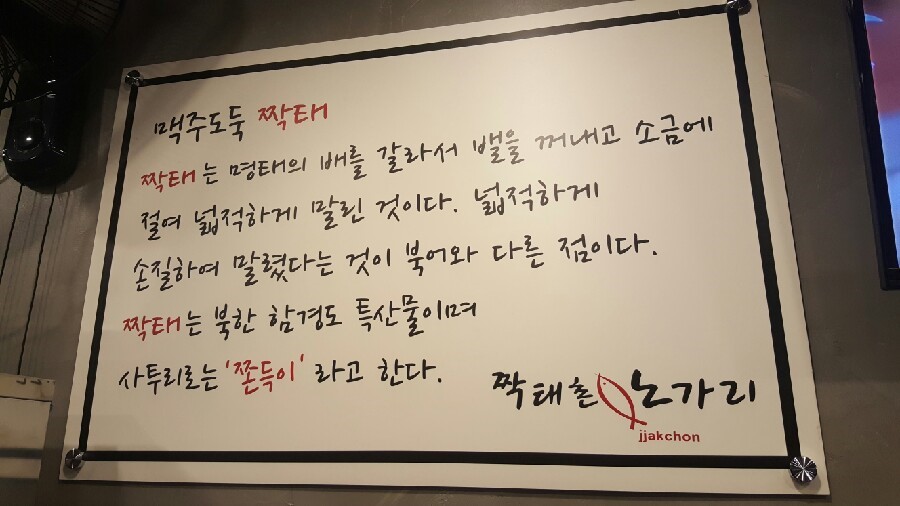 맥주도둑 짝태
짝태는 명태의 배를 갈라서 밸을 꺼내고 소금에
절여 넓적하게 말린 것이다. 넓적하게
손질하여 말렸다는 것이 북어와 다른 점이다.
짝태는 북한 함경도 특산물이며
사투리로는 '쫀득이' 라고 한다.
짝태촌 노가리
jjakchon